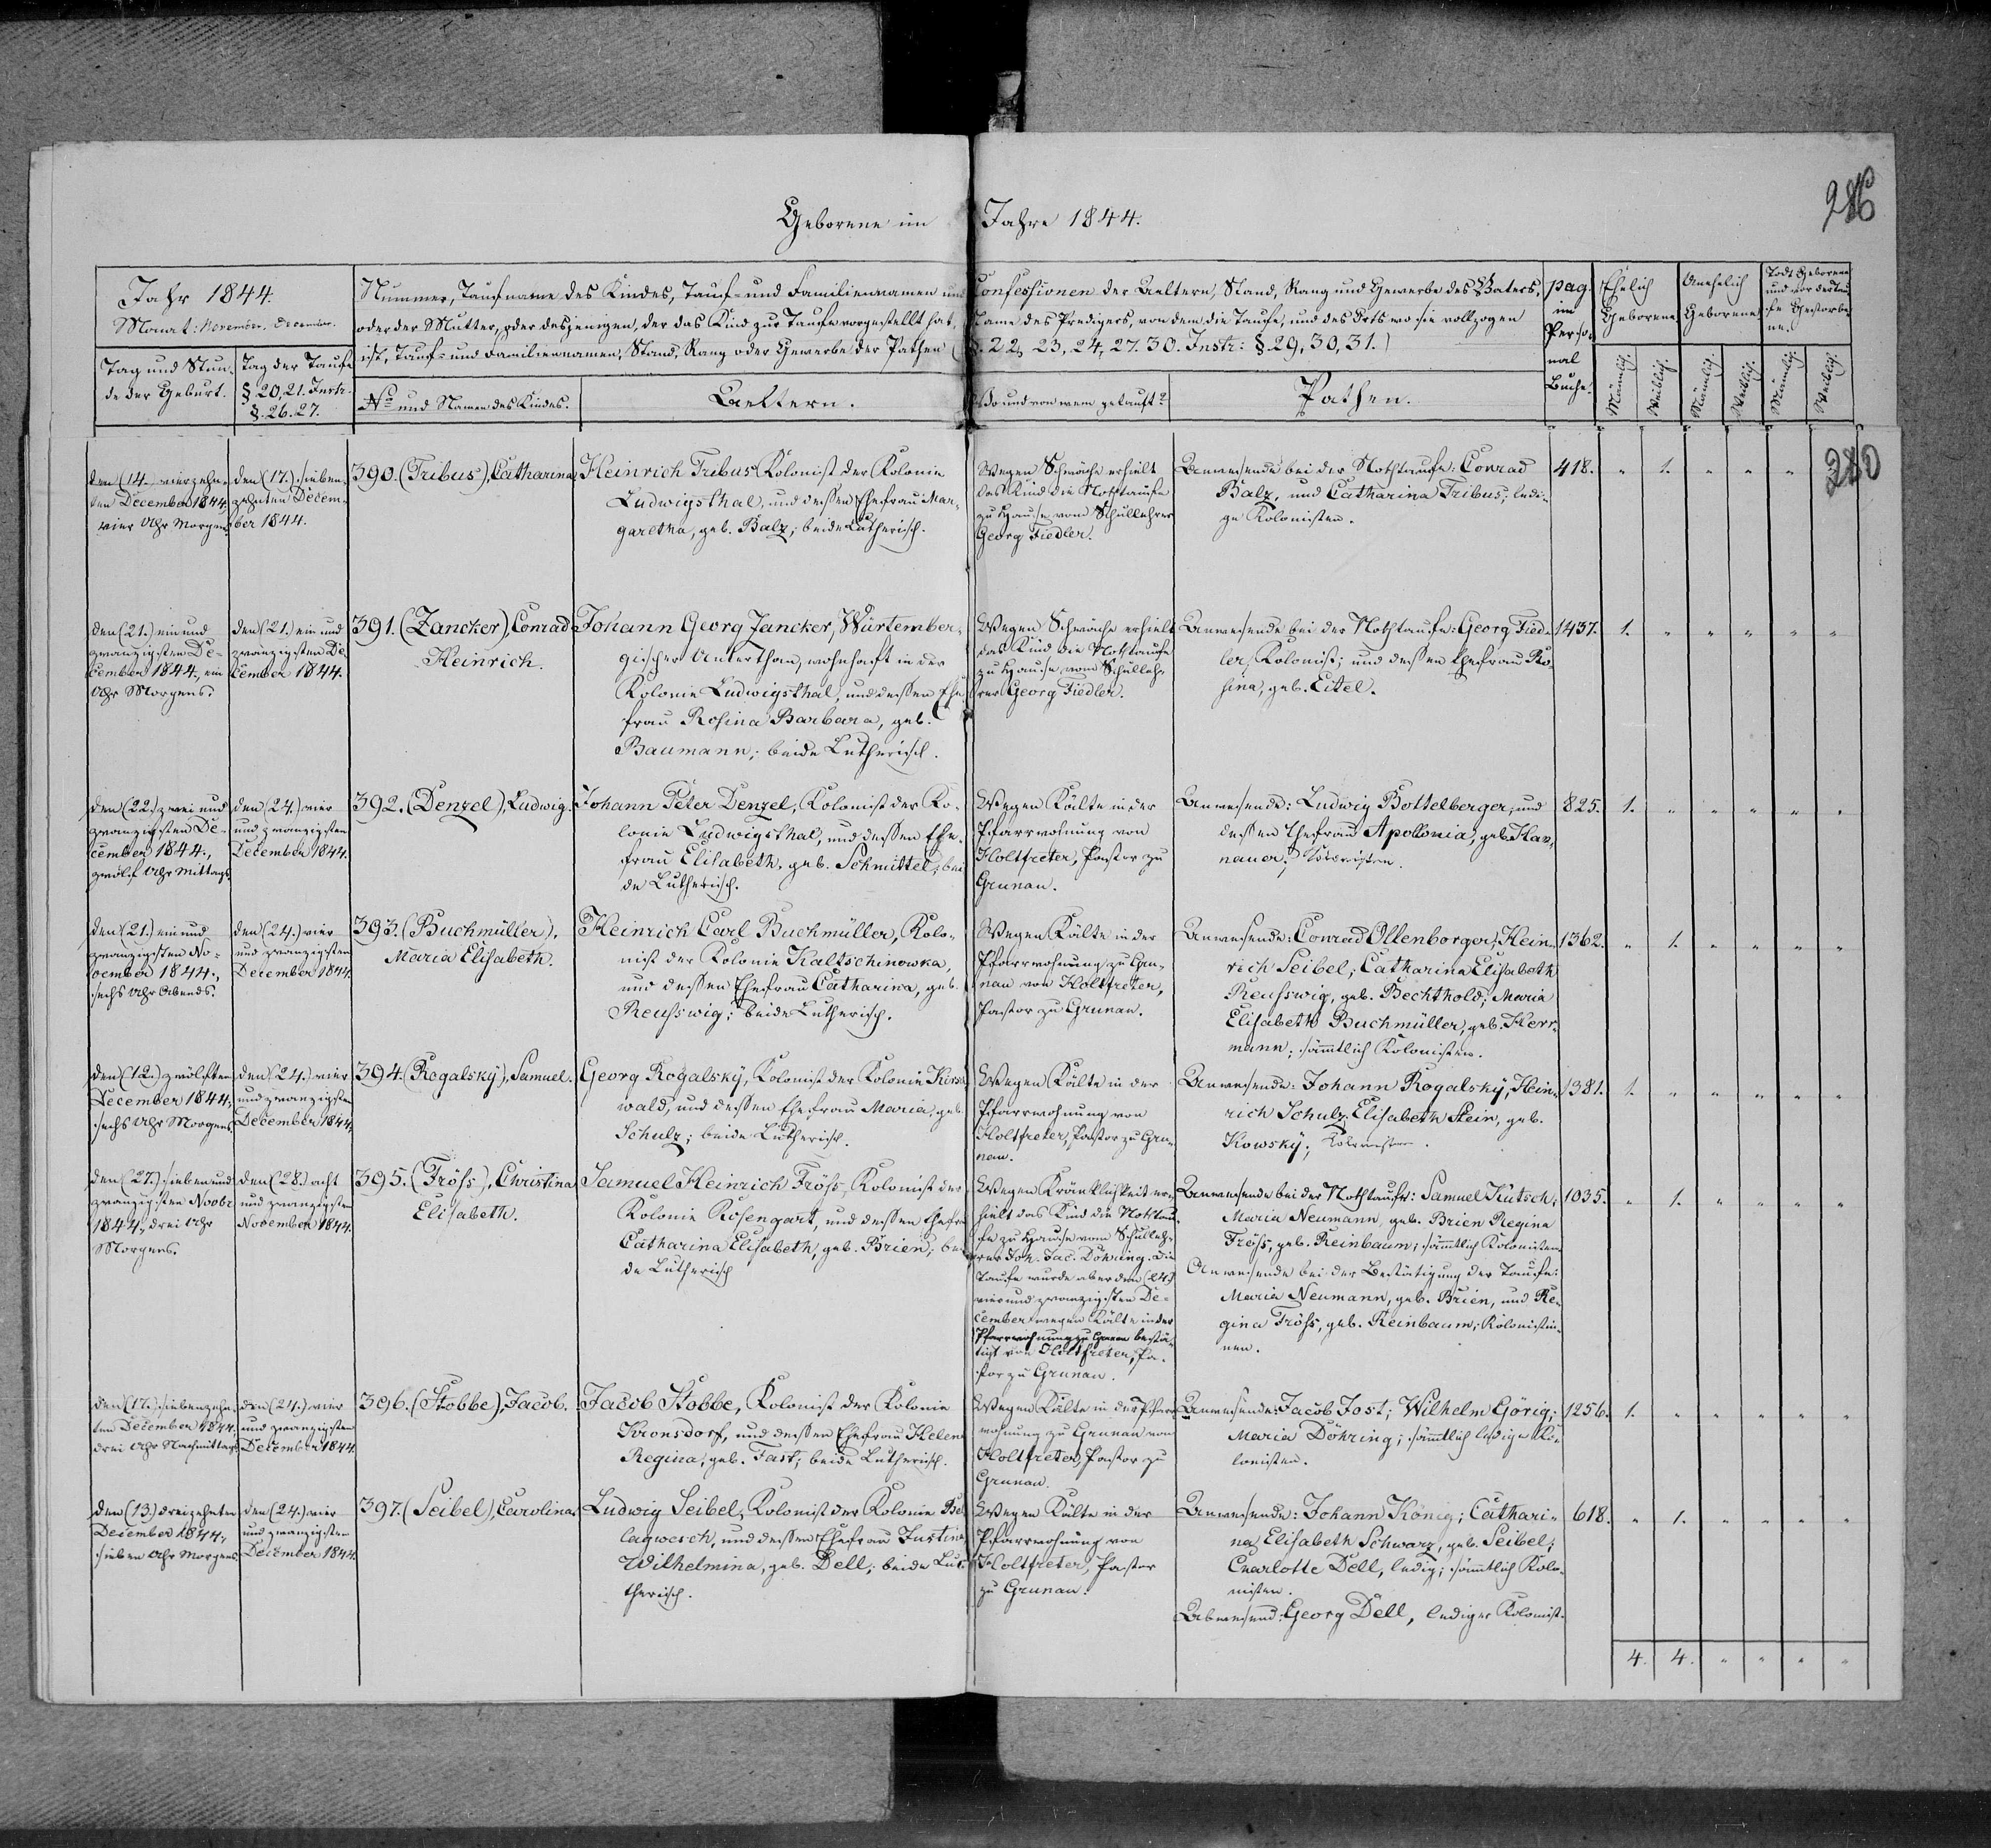 Geborene im Jahre 1844.
286
Jahr 1844.
Monat: November. December.
Nummer, Taufname des Kindes, Tauf- und Familiennamen und Confessionen der Aeltern, Stand, Rang und Gewerbe des Vaters,
oder der Mutter, oder desjenigen, der das Kind zur Taufe vorgestellt hat, Name des Predigers, von dem die Taufe, und des Orts wo sie vollzogen
ist, Tauf- und Familiennamen, Stand, Rang oder Gewerbe der Pathen (§. 22, 23, 24, 27. 30. Instr: §. 29, 30, 31.)
pag.
im
Perso-
nal
Buche.
Ehelich
Geborene.
Unehelich
Geborene.
Todt Geborene
und vor der Tau-
fe Gestorbe-
ne.
Tag und Stun-
de der Geburt.
Tag der Taufe
§ 20, 21. Instr.
§. 26. 27.
No und Namen des Kindes.
Aeltern.
Wo und von wem getauft?
Pathen.
Männlich.
Weiblich.
Männlich.
Weiblich.
Männlich.
Weiblich.
280
den (14.) vierzehn-
ten December 1844,
vier Uhr Morgens.
den (17.) sieben-
zehnten Decem-
ber 1844.
390. (Tribus), Catharina
Heinrich Tribus, Kolonist der Kolonie
Ludwigsthal, und dessen Ehefrau Mar-
garetha, geb. Balz; beide Lutherisch.
Wegen Schwäche erhielt
das Kind die Nothtaufe
zu Hause vom Schullehrer
Georg Fiedler.
Anwesende bei der Nothtaufe: Conrad
Balz, und Catharina Tribus; ledi-
ge Kolonisten.
418. " 1. " " "
den (21.) ein und
zwanzigsten De-
cember 1844., ein
Uhr Morgens.
den (21.) ein und
zwanzigsten De-
cember 1844.
391. (Zancker), Conrad
Heinrich.
Johann Georg Jancker, Würtember-
gischer Unterthan, wohnhaft in der
Kolonie Ludwigsthal, und dessen Ehe-
frau Rosina Barbara, geb.
Baumann; beide Lutherisch.
Wegen Schwäche erhielt
das Kind die Nothtaufe
zu Hause vom Schulleh-
rer Georg Fiedler.
Anwesende bei der Nothtaufe: Georg Fied-
ler, Kolonist; und dessen Ehefrau Ro-
sina, geb. Eitel.
1437. 1. " " " " "
den (22.) zwei und
zwanzigsten De-
cember 1844.,
zwölf Uhr Mittags.
den (24.) vier
und zwanzigsten
December 1844.
392. (Denzel), Ludwig.
Johann Peter Denzel, Kolonist der Ko-
lonie Ludwigsthal, und dessen Ehe-
frau Elisabeth, geb. Schmittel; bei-
de Lutherisch.
Wegen Kälte in der
Pfarrwohnung von
Holtfreter, Pastor zu
Grunau.
Anwesende: Ludwig Bottelberger, und
dessen Ehefrau Apollonia, geb. Han-
nauer; Kolonisten.
825. 1. " " " " "
den (21.) ein und
zwanzigsten No-
vember 1844.,
sechs Uhr Abends.
den (24.) vier
und zwanzigsten
December 1844.
393. (Buchmüller),
Maria Elisabeth.
Heinrich Carl Buchmüller, Kolo-
nist der Kolonie Kaltschinowka,
und dessen Ehefrau Catharina, geb.
Reusswig; beide Lutherisch.
Wegen Kälte in der
Pfarrwohnung zu Gru-
nau von Holtfreter,
Pastor zu Grunau.
Anwesende: Conrad Ollenborger; Hein-
rich Seibel; Catharina Elisabeth
Reusswig, geb. Bechthold; Maria
Elisabeth Buchmüller, geb. Herr-
mann; sämtlich Kolonisten.
1362. " 1. " " " "
den (12.) zwölften
December 1844.,
sechs Uhr Morgens.
den (24.) vier
und zwanzigsten
December 1844.
394. (Rogalsky), Samuel.
Georg Rogalsky, Kolonist der Kolonie Kirsch-
wald, und dessen Ehefrau Maria, geb.
Schulz; beide Lutherisch.
Wegen Kälte in der
Pfarrwohnung von
Holtfreter, Pastor zu Gru-
nau.
Anwesende: Johann Rogalsky; Hein-
rich Schulz; Elisabeth Stein, geb.
Kowsky; Kolonisten.
1381. 1. " " " " "
den (27.) sieben und
zwanzigsten Novbr
1844., drei Uhr
Morgens.
den (28.) acht
und zwanzigsten
November 1844.
395. (Fröss), Christina
Elisabeth.
Samuel Heinrich Fröss, Kolonist der
Kolonie Rosengart, und dessen Ehefrau
Catharina Elisabeth, geb. Brien; bei-
de Lutherisch
Wegen Kränklichkeit er-
hielt das Kind die Nothtau-
fe zu Hause vom Schulleh-
rer Joh. Jac. Döhring. Die
Taufe wurde aber den (24.)
vier und zwanzigsten De-
cember wegen Kälte in der
Pfarrwohnung zu Grunau bestä-
tigt von Holtfreter, Pa-
stor zu Grunau.
Anwesende bei der Nothtaufe: Samuel Kutsch;
Maria Neumann, geb. Brien Regina
Fröss, geb. Reinbaum; sämtlich Kolonisten.
Anwesende bei der Bestätigung der Taufe:
Maria Neumann, geb. Brien, und Re-
gina Fröss, geb. Reinbaum; Kolonistin-
nen.
1035. " 1. " " " "
den (17.) siebenzehn-
ten December 1844.,
drei Uhr Nachmittags.
den (24.) vier
und zwanzigsten
December 1844.
396. (Stobbe), Jacob.
Jacob Stobbe, Kolonist der Kolonie
Kronsdorf, und dessen Ehefrau Helena
Regina, geb. Fast; beide Lutherisch.
Wegen Kälte in der Pfarr-
wohnung zu Grunau von
Holtfreter, Pastor zu
Grunau.
Anwesende: Jacob Jost; Wilhelm Görig;
Maria Döhring; sämtlich ledige Ko-
lonisten.
1256. 1. " " " " "
den (13.) dreizehnten
December 1844.,
sieben Uhr Morgens.
den (24.) vier
und zwanzigsten
December 1844.
397. (Seibel), Carolina.
Ludwig Seibel, Kolonist der Kolonie Bel-
lagwesch, und dessen Ehefrau Justina
Wilhelmina, geb. Dell; beide Lu-
therisch.
Wegen Kälte in der
Pfarrwohnung von
Holtfreter, Pastor
zu Grunau.
Anwesende: Johann König; Cathari-
na Elisabeth Schwarz, geb. Seibel;
Charlotte Dell, ledig; sämtlich Kolo-
nisten.
Abwesend: Georg Dell, lediger Kolonist.
618. " 1. " " " "
4. 4. " " " "